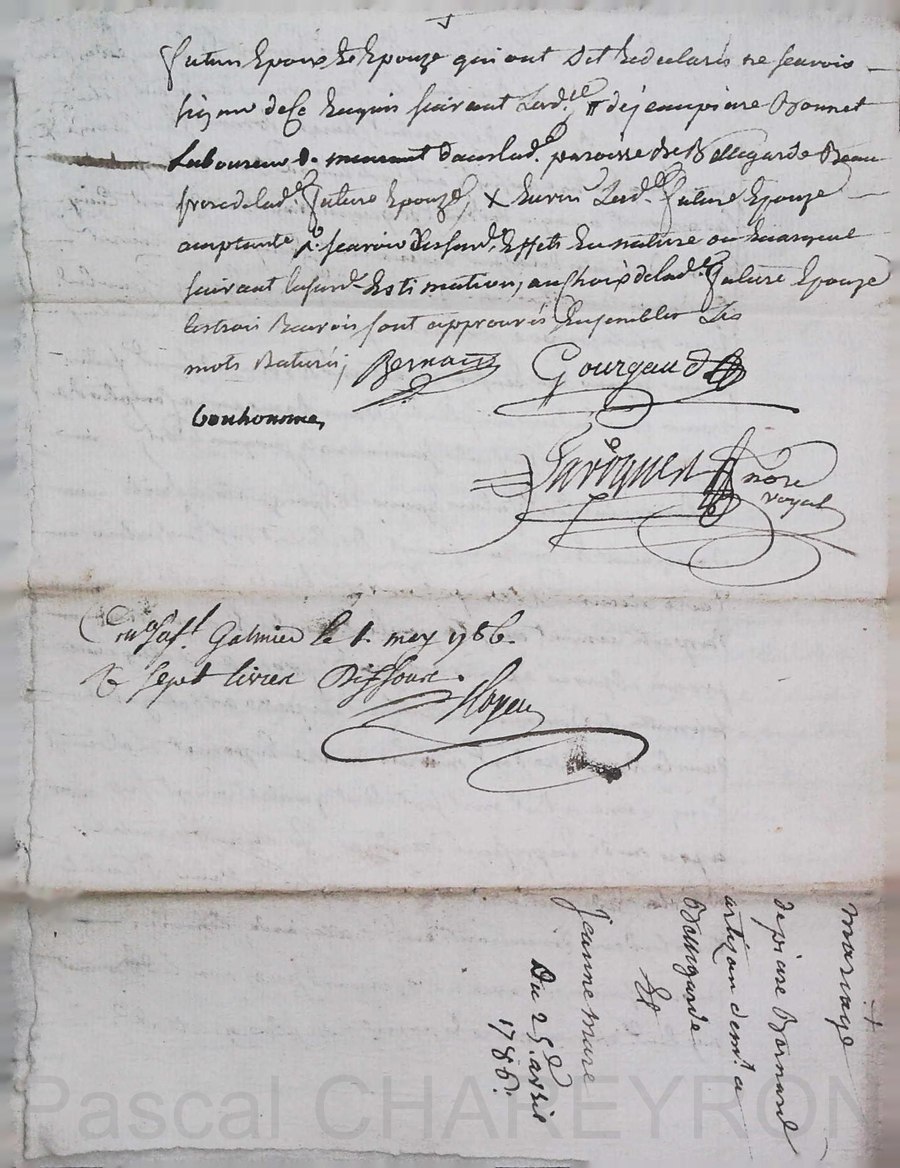 futurs Epoux et Epouze qui ont dit et declaré ne scavoir
signer de ce Enquis suivant L'ord.ce # de jean pierre Bonnet
Laboureur demeurant dans lad.e paroisse de Bellegarde Beau
frere de lad.e future Epouze, X Envers Lad.e future Epouze
acceptante
suivant lasusd.e Estimation, au choix de lad.e future Epouze
les trois Renvois sont approuvés Ensembles Les
mots Raturés,
Bernard
Gourgaud
bonhomme,
nore
royal
Con.lé a S.t Galmier le 1. mey 1786.
R. sept livres dix sous.
mariage
de piere Bernard
artizan dem.t a
Bellegarde
Et
Jeanne mure
Du 25.e avril
1786.
Pascal CHAREYRON